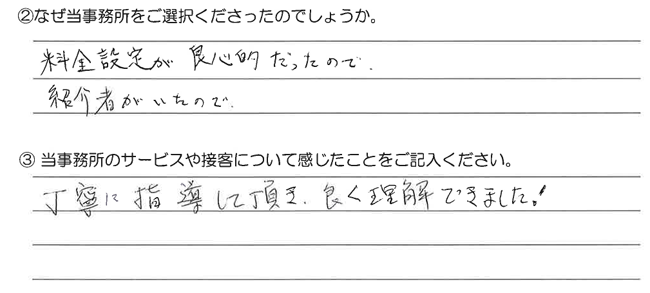 ②なぜ当事務所をご選択くださったのでしょうか。
料金設定が良心的だったので.
紹介者がいたので.
③ 当事務所のサービスや接客について感じたことをご記入ください。
丁寧に指導して頂き、良く理解できました!